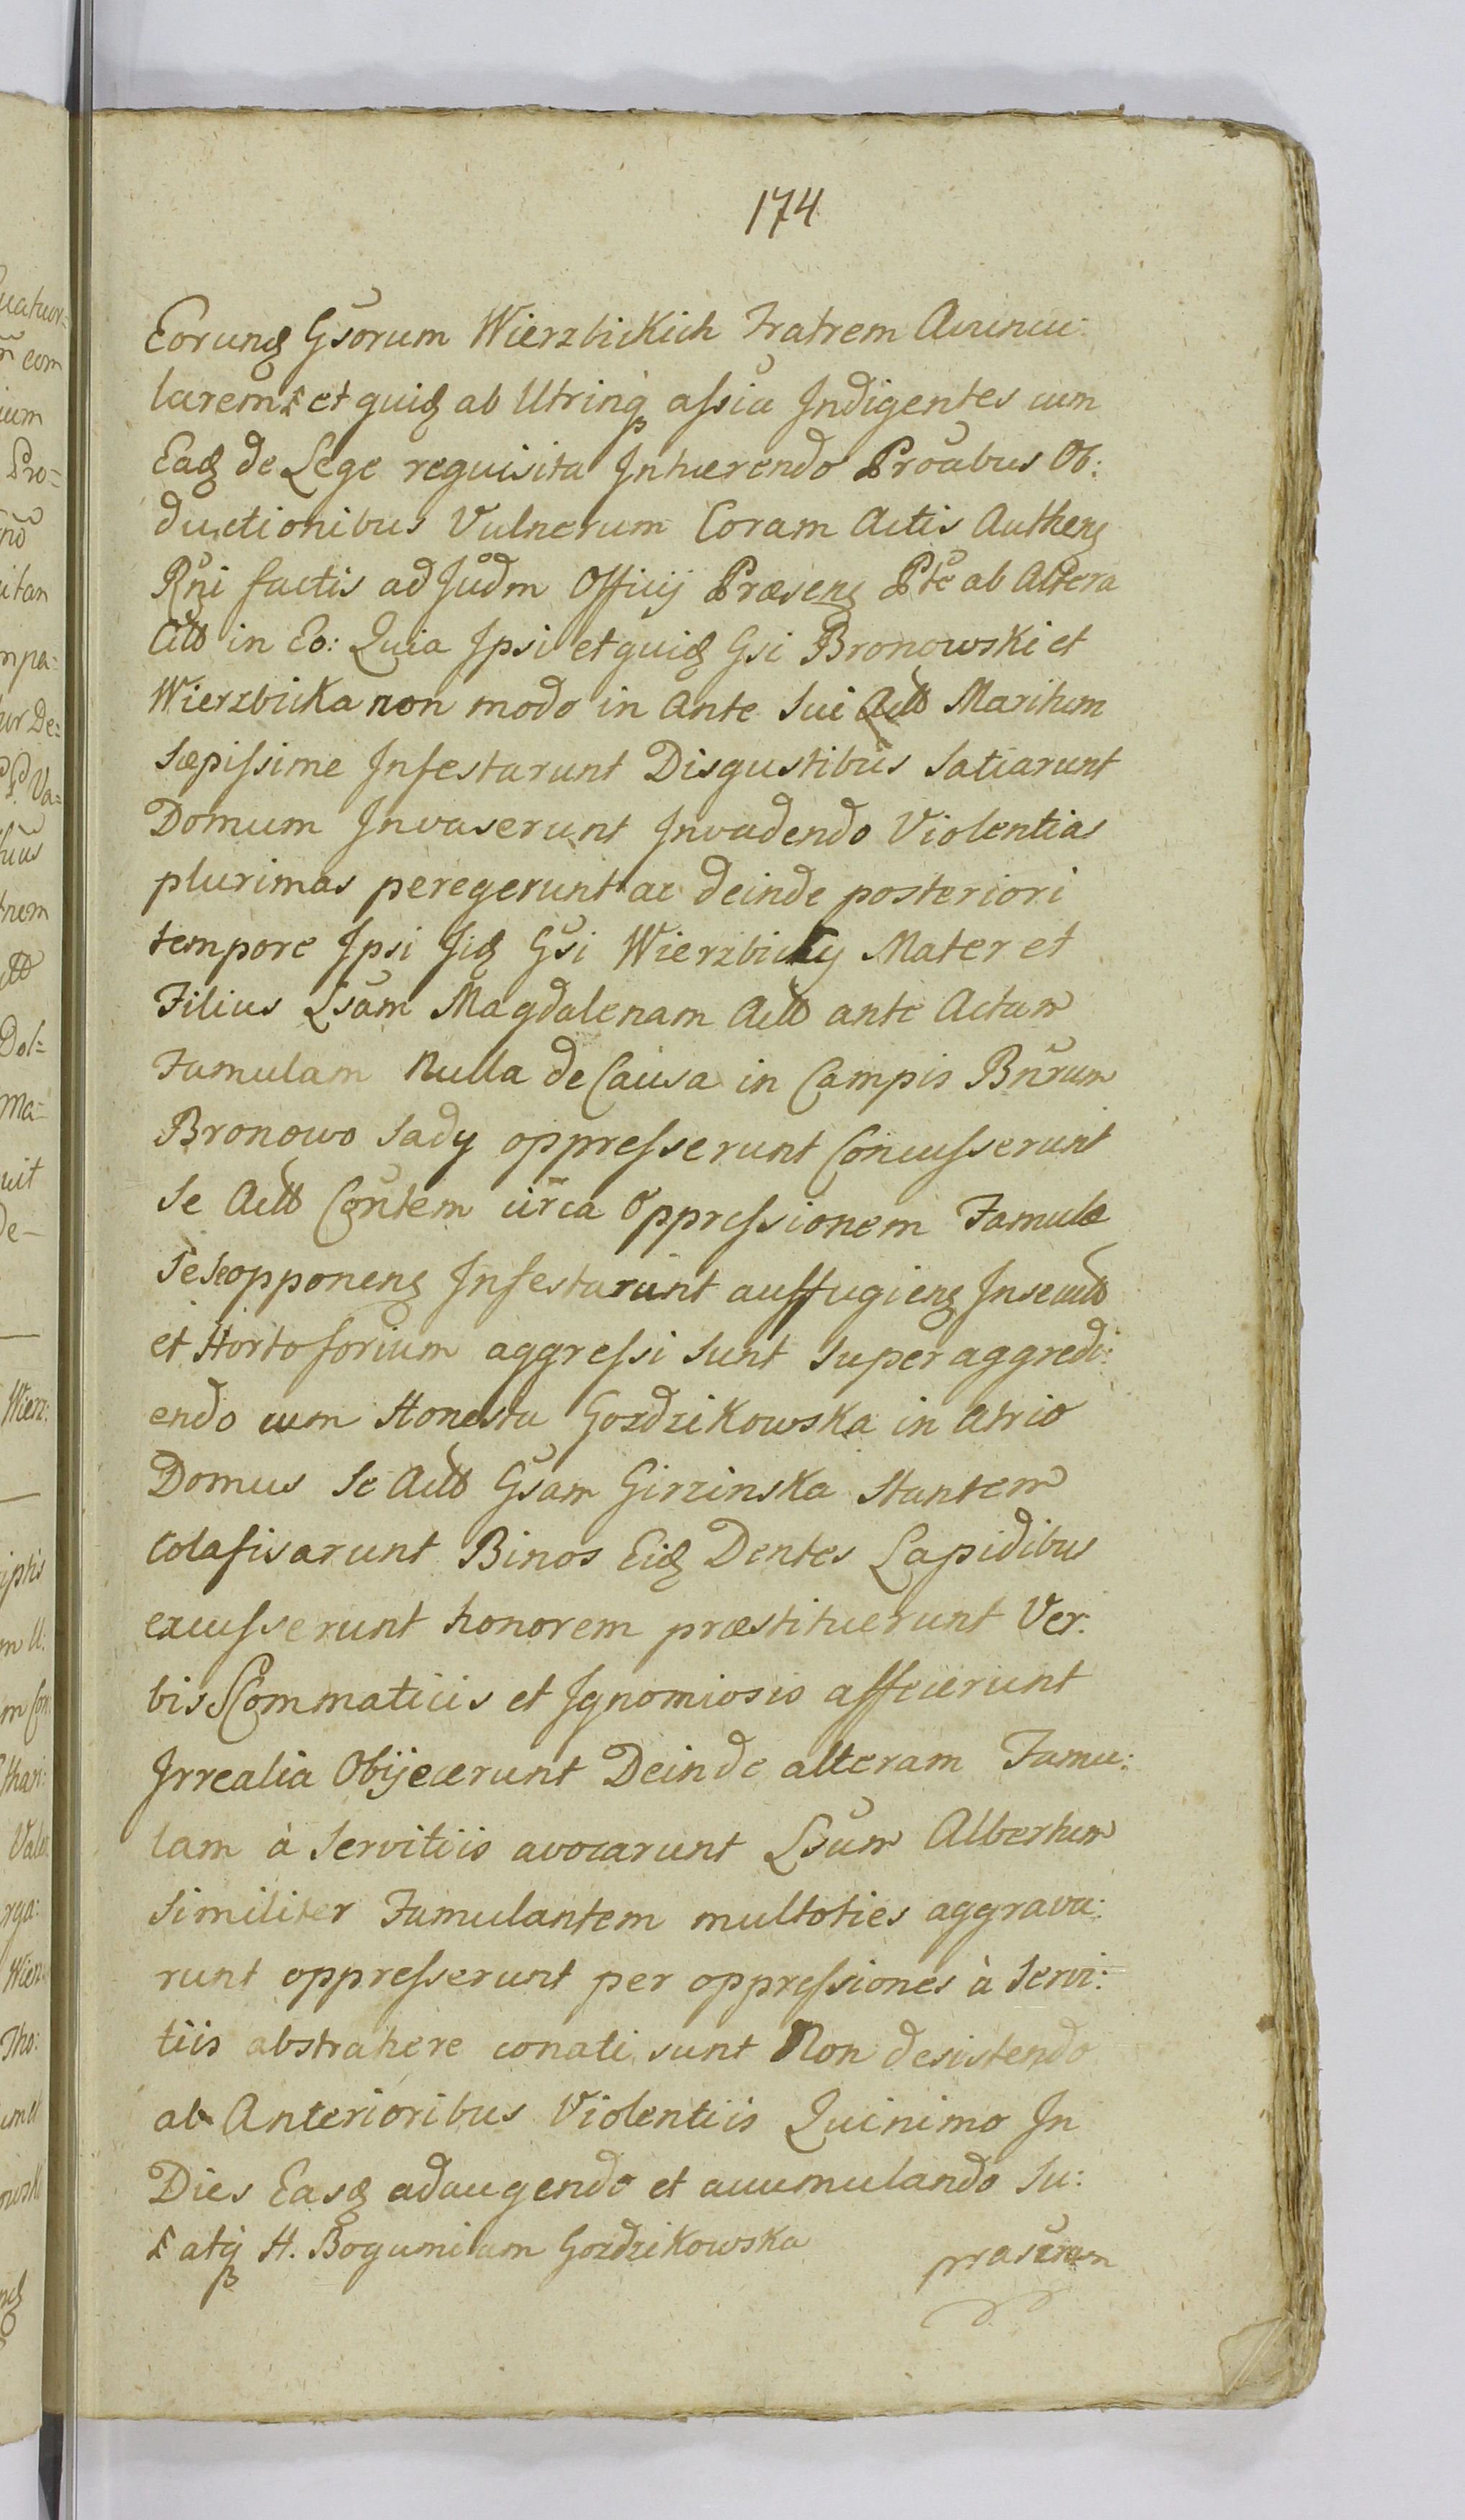 174
Eorund Gsorum Wierzbickich Fratrem Avuncu:
larem et quid ab Utrinq assia Indigentes cum
Ead de Lege requisita Inhærendo Proabus Ob:
ductionibus Vulnerum Coram Actis Authen
Rgni factis ad Judm Officij Præsen Pte ab Altera
Actt in Eo: Quia Ipsi et quid Gsi Bronowski et
Wierzbicka non modo in ante sui Actt Maritum
Sæpissime Infestarunt Disgustibus Satiarunt
Domum Invaserunt Invadendo Violentias
plurimas peregerunt ac deinde posteriori
tempore Ipsi Iid Gsi Wierzbicky Mater et
Filius Lsam Magdalenam Actt ante Actam
Famulam Nulla de Causa in Campis Bnrum
Bronowo Sady oppresserunt Concusserunt
Se Actt Contem circa Oppressionem Famulæ
Seseopponen Infestarunt auffugien Insecutt
et Horto forium aggressi sunt Superaggredi:
endo cum Honesta Gozdzikowska in Atrio
Domus Se Actt Gsam Girzinska Stantem
Colafisarunt Binos Eid Dentes Lapidibus
excusserunt honorem præstituerunt Ver:
bis SCommaticis et Ignomiosis affecerunt
Irrealia Obijecerunt Deinde alteram Famu:
lam à Servitiis avocarunt Lsum Albertum
Similiter Famulantem multoties aggrava:
runt oppresserunt per oppressiones à Servi:
tiis abstrahere conati sunt Non desistendo
ab Anterioribus Violentiis Quinimo In
Dies Easd adaugendo et accumulando Su:
atq H. Bogumilam Gozdzikowska
prasrum